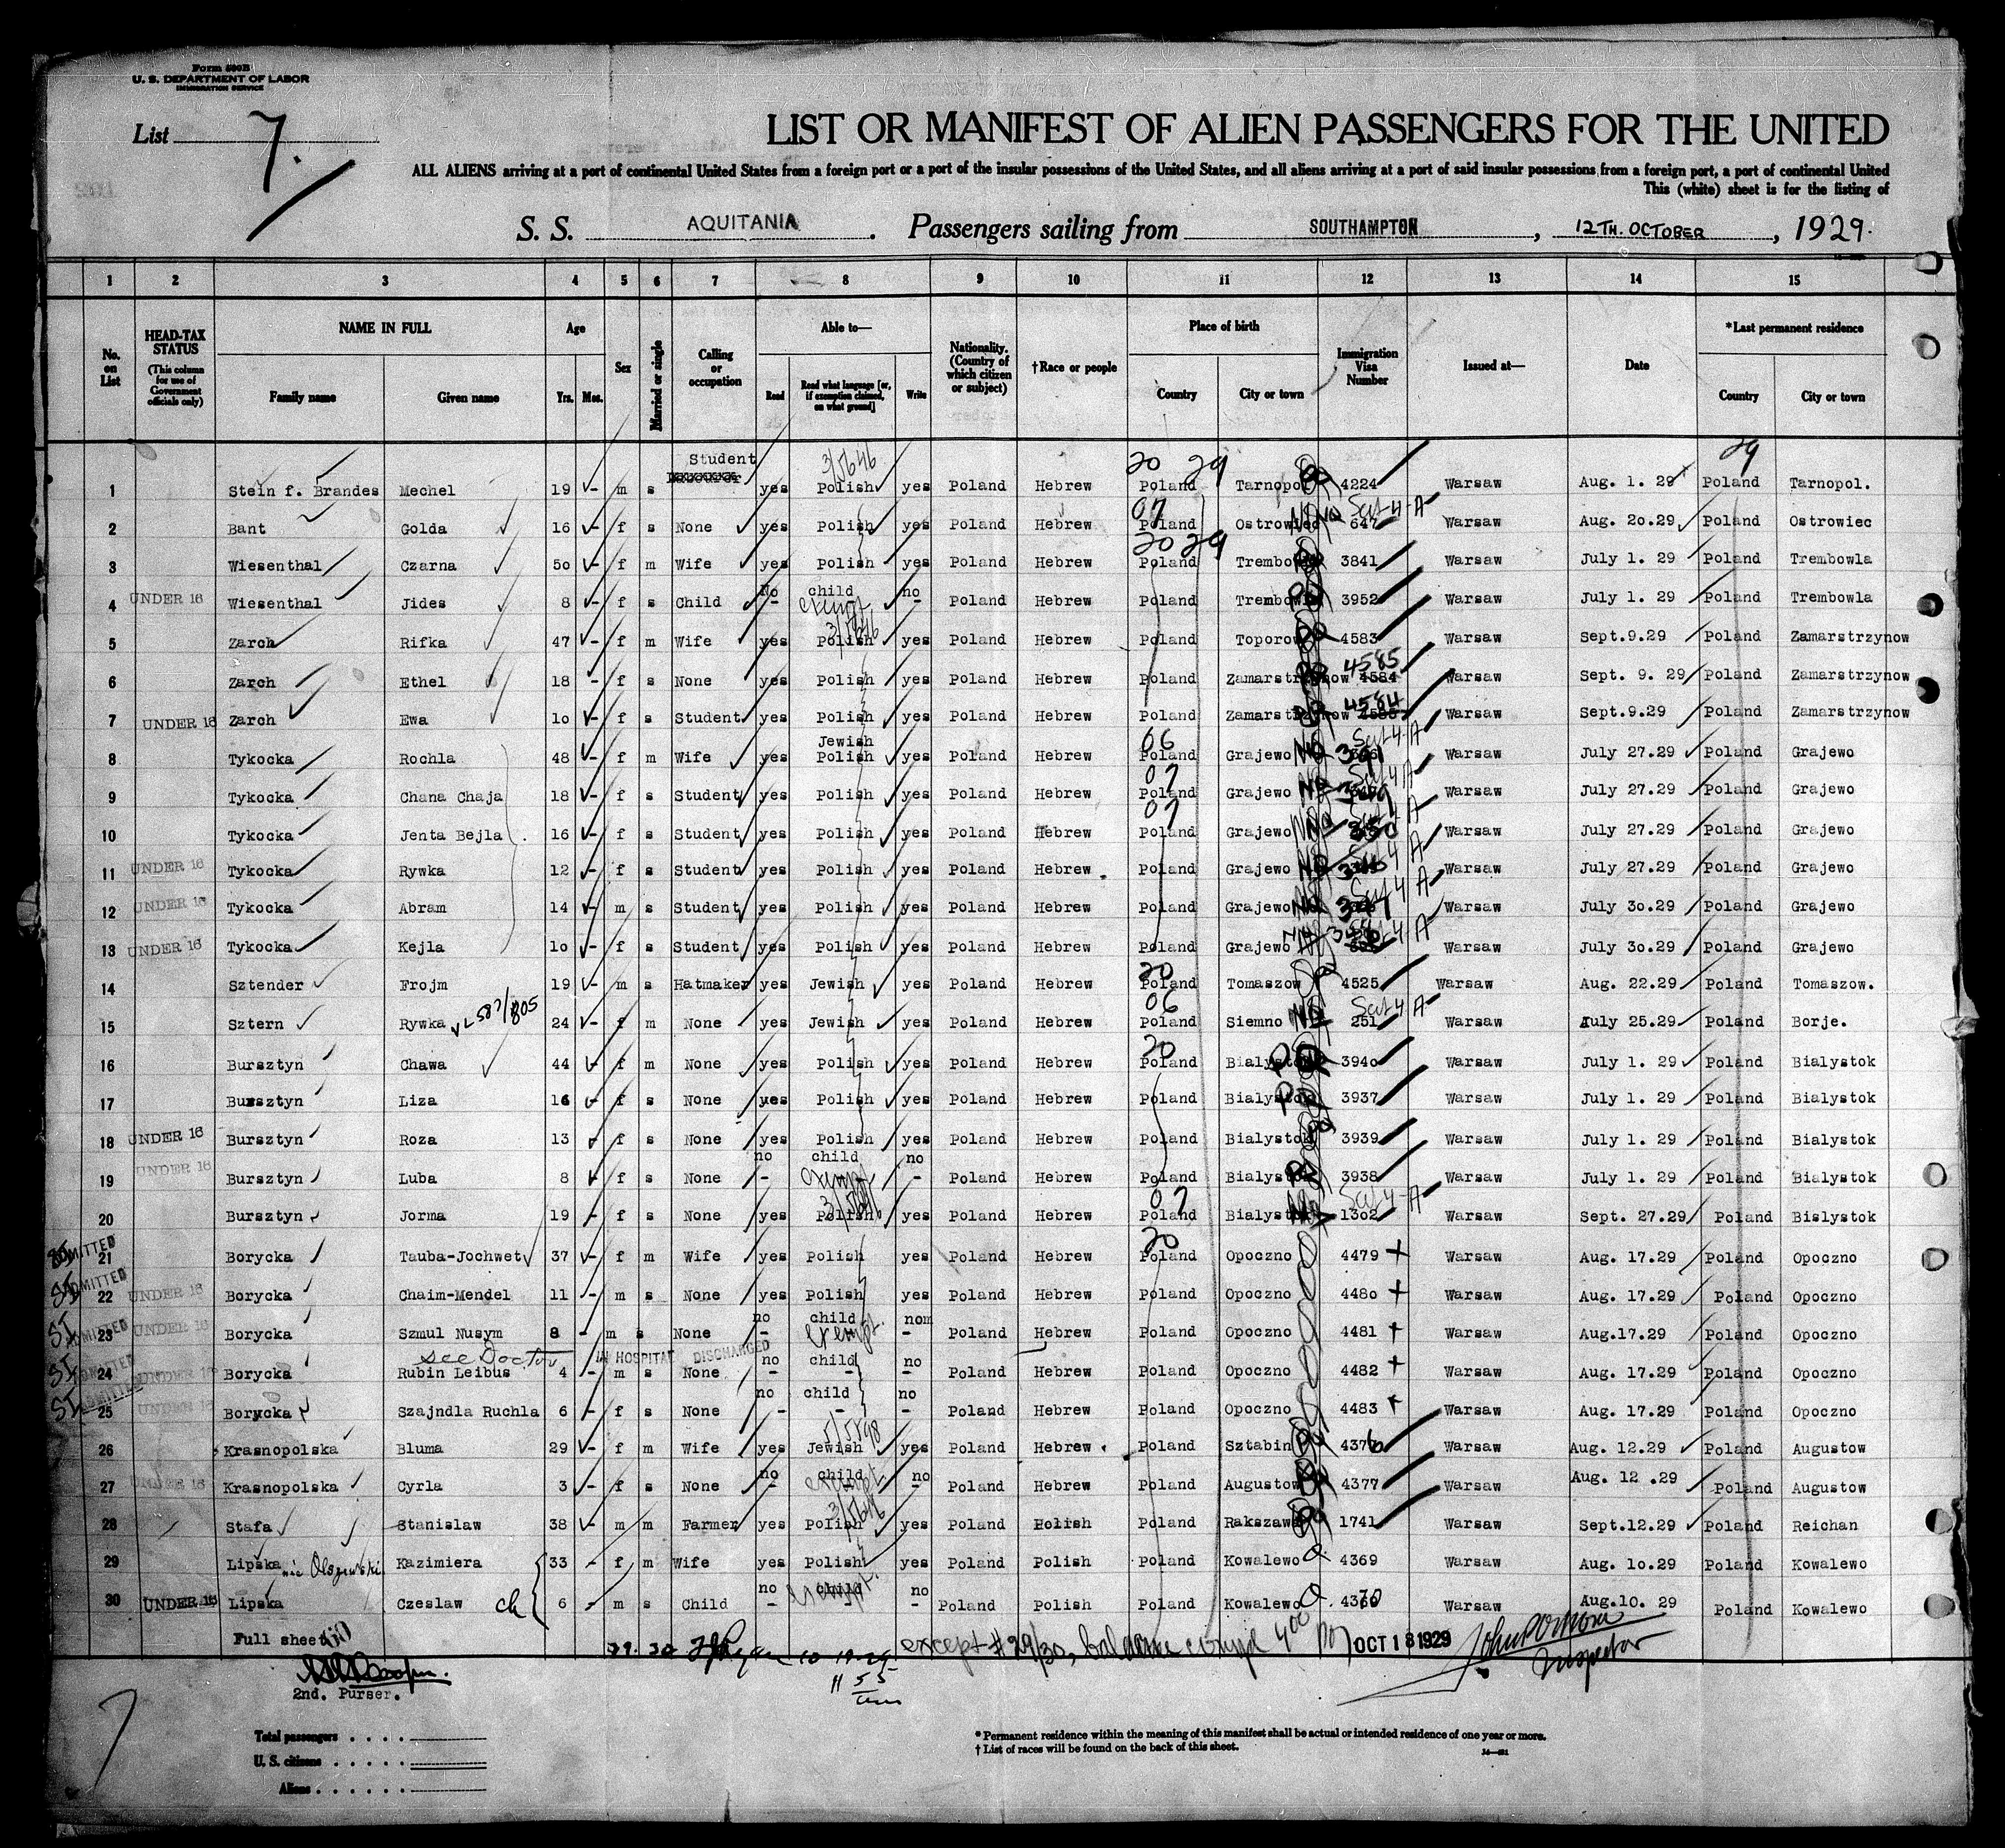 Form 500B
U. S. DEPARTMENT OF LABOR
IMMIGRATION SERVICE
List 7.
LIST OR MANIFEST OF ALIEN PASSENGERS FOR THE UNITED
ALL ALIENS arriving at a port of continental United States from a foreign port or a port of the insular possessions of the United States, and all aliens arriving at a port of said insular possessions from a foreign port, a port of continental United
This (white) sheet is for the listing of
S. S. AQUITANIA. Passengers sailing from SOUTHAMPTON, 12TH. OCTOBER, 1929.
1 2 3 4 5 6 7 8 9 10 11 12 13 14 15
No. on List
HEAD-TAX STATUS (This column for use of Government officials only)
NAME IN FULL Family name Given name
Age Yrs. Mos.
Sex
Married or single
Calling or occupation
Able to— Read Read what language [or, if exemption claimed, on what ground] Write
Nationality. (Country of which citizen or subject)
†Race or people
Place of birth Country City or town
Immigration Visa Number
Issued at—
Date
*Last permanent residence Country City or town
Student 3/5646 20 29 29
1 Stein f. Brandes Mechel 19 - m s yes Polish yes Poland Hebrew Poland Tarnopol 4224 Warsaw Aug. 1. 29 Poland Tarnopol.
07 Sect-4-A
2 Bant Golda 16 - f s None yes Polish yes Poland Hebrew Poland Ostrowiec 647 Warsaw Aug. 20.29 Poland Ostrowiec
20 29
3 Wiesenthal Czarna 50 - f m Wife yes Polish yes Poland Hebrew Poland Trembowla 3841 Warsaw July 1. 29 Poland Trembowla
No child no
4 UNDER 16 Wiesenthal Jides 8 - f s Child - exempt - Poland Hebrew Poland Trembowla 3952 Warsaw July 1. 29 Poland Trembowla
3/5646
5 Zarch Rifka 47 - f m Wife yes Polish yes Poland Hebrew Poland Toporow 4583 Warsaw Sept.9.29 Poland Zamarstrzynow
4585
6 Zarch Ethel 18 - f s None yes Polish yes Poland Hebrew Poland Zamarstrzynow 4584 Warsaw Sept. 9. 29 Poland Zamarstrzynow
4584
7 UNDER 16 Zarch Ewa 10 - f s Student yes Polish yes Poland Hebrew Poland Zamarstrzynow 4585 Warsaw Sept.9.29 Poland Zamarstrzynow
Jewish 06 Sect-4-A
8 Tykocka Rochla 48 - f m Wife yes Polish yes Poland Hebrew Poland Grajewo Warsaw July 27.29 Poland Grajewo
07 Sect 4 A
9 Tykocka Chana Chaja 18 - f s Student yes Polish yes Poland Hebrew Poland Grajewo Warsaw July 27.29 Poland Grajewo
07
10 Tykocka Jenta Bejla 16 - f s Student yes Polish yes Poland Hebrew Poland Grajewo 350 Warsaw July 27.29 Poland Grajewo
Sect 4 A
11 UNDER 16 Tykocka Rywka 12 - f s Student yes Polish yes Poland Hebrew Poland Grajewo Warsaw July 27.29 Poland Grajewo
Sect 4 A
12 UNDER 16 Tykocka Abram 14 - m s Student yes Polish yes Poland Hebrew Poland Grajewo Warsaw July 30.29 Poland Grajewo
13 UNDER 16 Tykocka Kejla 10 - f s Student yes Polish yes Poland Hebrew Poland Grajewo Warsaw July 30.29 Poland Grajewo
20
14 Sztender Frojm 19 - m s Hatmaker yes Jewish yes Poland Hebrew Poland Tomaszow 4525 Warsaw Aug. 22.29 Poland Tomaszow.
06 Sect 4-A
15 Sztern Rywka 19 VL 587/805 24 - f m None yes Jewish yes Poland Hebrew Poland Siemno 251 Warsaw July 25.29 Poland Borje.
20
16 Bursztyn Chawa 44 - f m None yes Polish yes Poland Hebrew Poland Bialystok 3940 Warsaw July 1. 29 Poland Bialystok
17 Bursztyn Liza 16 - f s None yes Polish yes Poland Hebrew Poland Bialystok 3937 Warsaw July 1. 29 Poland Bialystok
18 UNDER 16 Bursztyn Roza 13 - f s None yes Polish yes Poland Hebrew Poland Bialystok 3939 Warsaw July 1. 29 Poland Bialystok
no child no
19 UNDER 16 Bursztyn Luba 8 - f s None - exempt - Poland Hebrew Poland Bialystok 3938 Warsaw July 1. 29 Poland Bialystok
07 Sect 4-A
20 Bursztyn Jorma 19 - f s None yes Polish yes Poland Hebrew Poland Bialystok 1302 Warsaw Sept. 27.29 Poland Bislystok
20
SI ADMITTED 21 Borycka Tauba-Jochwet 37 - f m Wife yes Polish yes Poland Hebrew Poland Opoczno 4479 Warsaw Aug. 17.29 Poland Opoczno
SI ADMITTED 22 UNDER 16 Borycka Chaim-Mendel 11 - m s None yes Polish yes Poland Hebrew Poland Opoczno 4480 Warsaw Aug. 17.29 Poland Opoczno
no child nom
SI ADMITTED 23 UNDER 16 Borycka Szmul Nusym 8 - m s None - exempt. - Poland Hebrew Poland Opoczno 4481 Warsaw Aug.17.29 Poland Opoczno
See Doctor IN HOSPITAL DISCHARGED no child no
SI ADMITTED 24 UNDER 16 Borycka Rubin Leibus 4 - m s None - - - Poland Hebrew Poland Opoczno 4482 Warsaw Aug. 17.29 Poland Opoczno
no child no
SI ADMITTED 25 UNDER 16 Borycka Szajndla Ruchla 6 - f s None - - - Poland Hebrew Poland Opoczno 4483 Warsaw Aug. 17.29 Poland Opoczno
5/5898
26 Krasnopolska Bluma 29 - f m Wife yes Jewish yes Poland Hebrew Poland Sztabin 4376 Warsaw Aug. 12.29 Poland Augustow
no child no
27 UNDER 16 Krasnopolska Cyrla 3 - f s None - exempt - Poland Hebrew Poland Augustow 4377 Warsaw Aug. 12 .29 Poland Augustow
3/5646
28 Stafa Stanislaw 38 - m m Farmer yes Polish yes Poland Polish Poland Rakszawa 1741 Warsaw Sept.12.29 Poland Reichan
29 Lipska née Olszewski Kazimiera 33 - f m Wife yes Polish yes Poland Polish Poland Kowalewo 4369 Warsaw Aug. 10.29 Poland Kowalewo
no child no
30 UNDER 16 Lipska Czeslaw ch 6 - m s Child - exempt. - Poland Polish Poland Kowalewo 4370 Warsaw Aug.10. 29 Poland Kowalewo
Full sheet 30
29. 30 10-19-29 except # 29/30, balance OCT 18 1929
Inspector
2nd. Purser.
7
Total passengers . . . .
U. S. citizens . . . . .
Aliens . . . . . .
* Permanent residence within the meaning of this manifest shall be actual or intended residence of one year or more.
† List of races will be found on the back of this sheet.